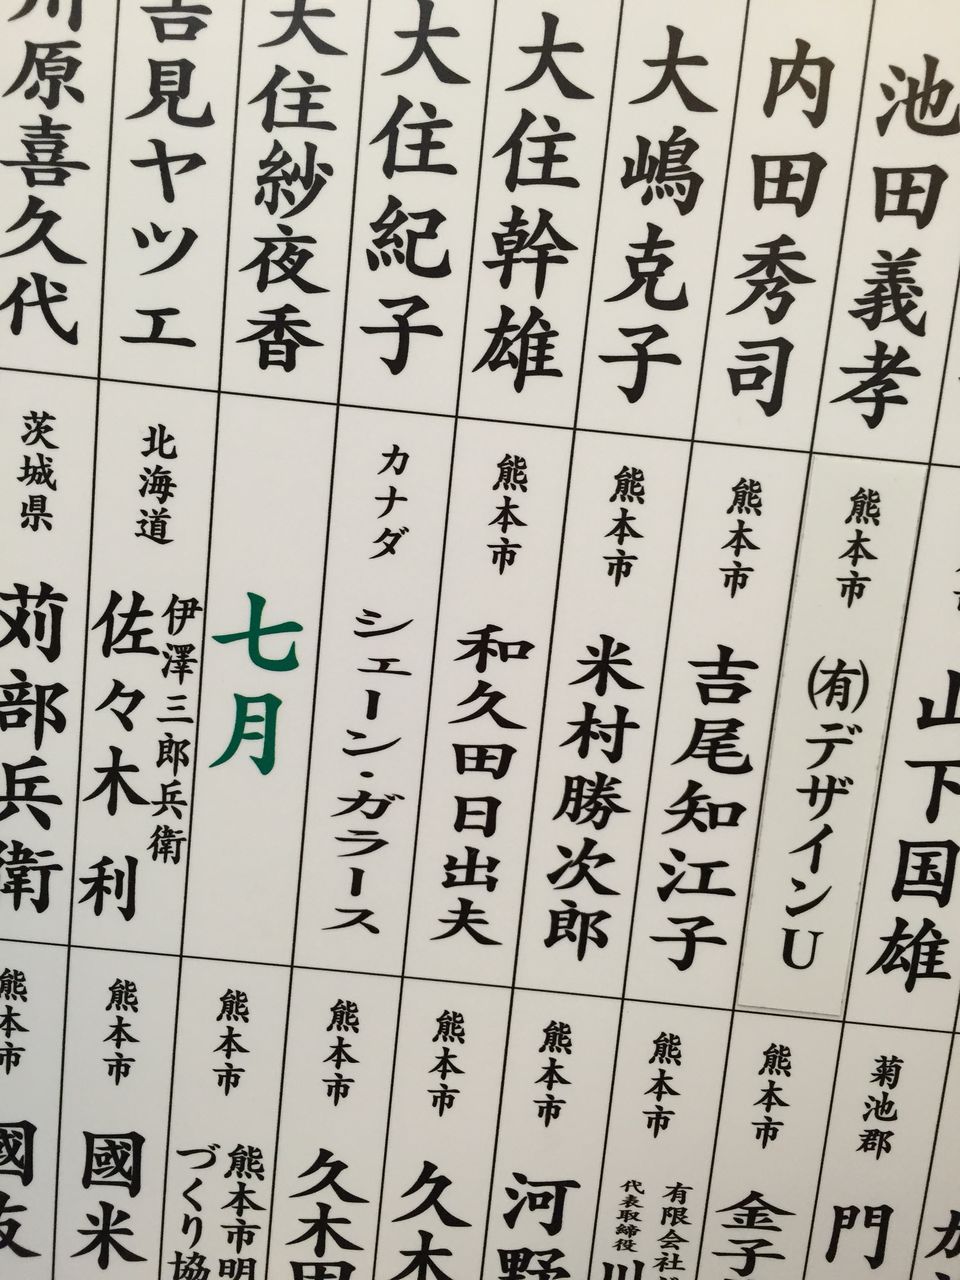 池田義孝
内田秀司
大嶋克子
大住幹雄
大住紀子
大住紗夜香
吉見ヤツエ
川原喜久代
山下国雄
熊本市 ㈲デザインU
熊本市 吉尾知江子
熊本市 米村勝次郎
熊本市 和久田日出夫
カナダ シェーン・ガラース
七月
北海道 伊澤三郎兵衛
佐々木利
茨城県 苅部兵衛
菊池郡 門
熊本市 金子
熊本市 有限会社
代表取締役 川
熊本市 河野
熊本市 久木
熊本市 久木田
熊本市 熊本市明
づくり協
熊本市 國米
熊本市 國友